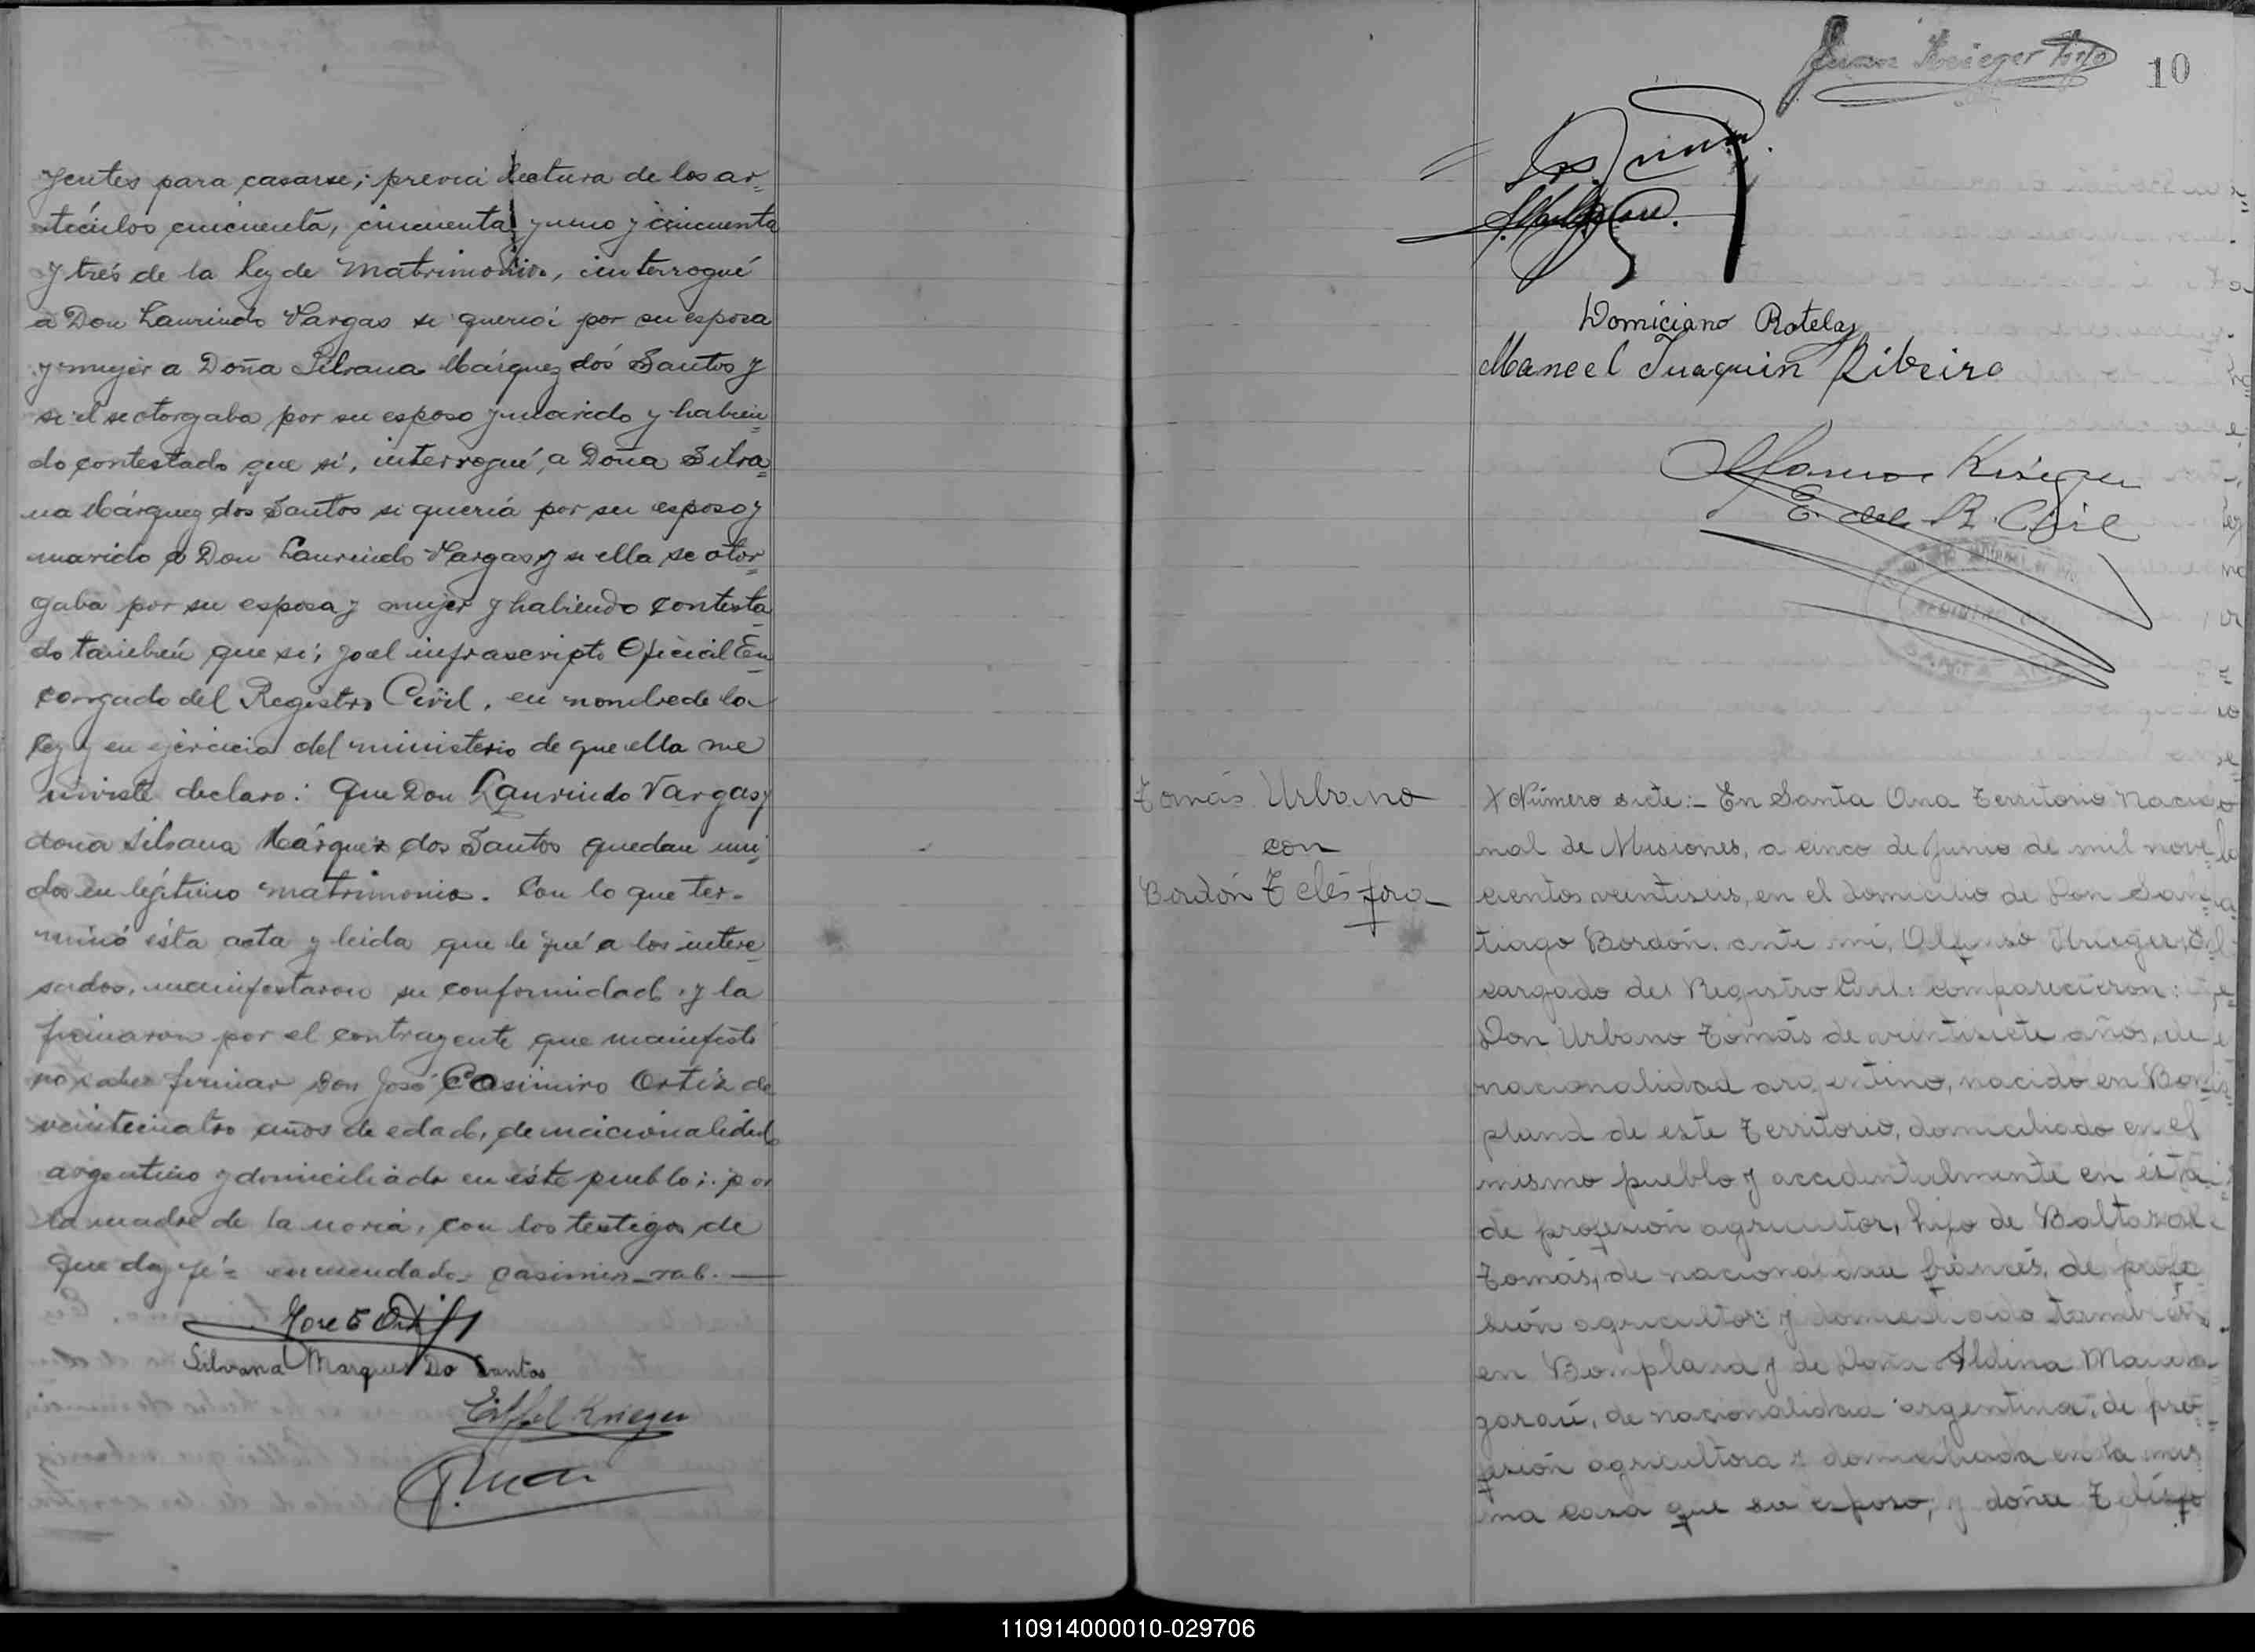 yentes para casarse; previa lectura de los ar-
tículos cincuenta, cincuenta y uno y cincuenta
y trés de la ley de matrimonio, interrogué
a Don Laurindo Vargas si queria por su esposa
y mujer a Doña Silvana Márquez dos Santos y
si él se otorgaba por su esposo y marido y habien=
do contestado que sí, interrogué a Doña Silva=
na Márquez dos Santos si quería por su esposo y
marido a Don Laurindo Vargas y si ella se otor=
gaba por su esposa y mujer y habiendo contesta=
do también que si; yo el infrascripto Oficial En=
cargado del Registro Civil, en nombre de la
ley y en ejercicio del ministerio de que ella me
inviste declaro: Que Don Laurindo Vargas y
doña Silvana Márquez dos Santos quedan uni=
dos en legítimo matrimonio. Con lo que ter-
minó ésta acta y leida que le fué a los intere=
sados, manifestaron su conformidad, y la
firmaron por el contrayente que manifestó
no saber firmar Don José Casimiro Ortiz de
veinticuatro años de edad, de nacionalidad
argentino y domiciliado en éste pueblo; por
la madre de la novia, con los testigos de
que doy fé= enmendado- Casimiro_vale.
Jose C Ortiz
Silvana Marques Do Santos
Eiffel Krieger
Juan Krieger
10
Domiciano Rotelas
Manoel Juaquin Ribeiro
Alfonso Krieger
E. del R. Civil
REGISTRO CIVIL
SANTA ANA
Tomás Urbano
con
Bordón Telésfora
X Número siete:- En Santa Ana Territorio Nacio
nal de Misiones, a cinco de Junio de mil nove
cientos veintiseis, en el domicilio de Don San=
tiago Bordón, ante mí, Alfonso Krieger, En=
cargado del Registro Civil: comparecieron:
Don Urbano Tomás de veintisiete años, de
nacionalidad argentino, nacido en Bom
pland de este Territorio, domiciliado en el
mismo pueblo y accidentalmente en ésta
de profesión agricultor, hijo de Baltazar
Tomás, de nacionalidad francés, de profe=
sión agricultor y domiciliado también
en Bompland y de Doña Aldina
de nacionalidad argentina, de pro=
fesión agricultora y domiciliada en la mis
ma casa que su esposo, y doña Telésfo
110914000010-029706